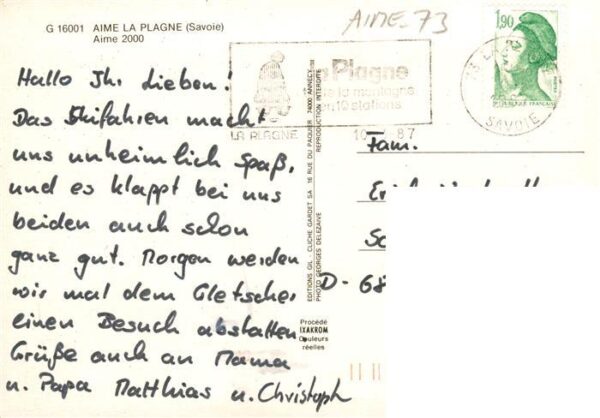 G 16001 AIME LA PLAGNE (Savoie)
Aime 2000
AIME-73
Hallo Ihr Lieben!
Das Skifahren macht
uns unheimlich Spaß,
und es klappt bei uns
beiden auch schon
ganz gut. Morgen werden
wir mal dem Gletscher
einen Besuch abstatten.
Grüße auch an Mama
u. Papa Matthias u. Christoph
La Plagne
toute la montagne
en 10 stations
LA PLAGNE 10 87
1,90
REPUBLIQUE FRANÇAISE
SAVOIE
EDITIONS GIL - CLICHE GARDET SA 16 RUE DU PAQUIER 74000 ANNECY
PHOTO GEORGES DELEZAIVE REPRODUCTION INTERDITE
Procédé
IXAKROM
Couleurs
réelles
Fam.
D-68